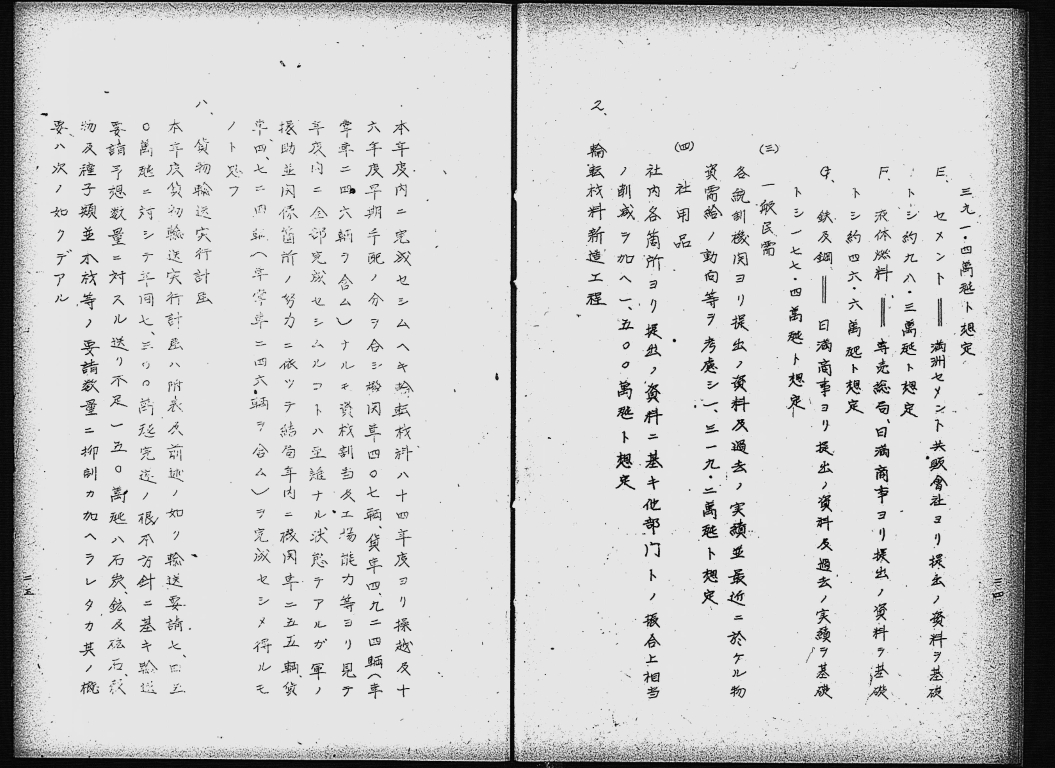 三九一・四萬瓲ト想定
E、セメント＝満洲セメント共販會社ヨリ提出ノ資料ヲ基礎
トシ約九八・三萬瓲ト想定
F、液体燃料＝専売総局、日満商事ヨリ提出ノ資料ヲ基礎
トシ約四六・六萬瓲ト想定
G、鉄及鋼＝日満商事ヨリ提出ノ資料及過去ノ実績ヲ基礎
トシ一七七・四萬瓲ト想定
(三) 一般民需
各統制機関ヨリ提出ノ資料及過去ノ実績並最近ニ於ケル物
資需給ノ動向等ヲ考慮シ一、三一九・二萬瓲ト想定
(四) 社用品
社内各箇所ヨリ提出ノ資料ニ基キ他部門トノ振合上相当
ノ削減ヲ加ヘ一、五〇〇萬瓲ト想定
2、輪転材料新造工程
三四
本年度内ニ完成セシムヘキ輪転材料ハ十四年度ヨリ操越及十
六年度早期手配ノ分ヲ合シ機関車四〇七輌、貨車四、九二四輌(軍
常車二四六輌ヲ合ム)ナルモ資材割当及工場能力等ヨリ見テ
年度内ニ全部完成セシムルコトハ至難ナル状態テアルガ軍ノ
援助並関係箇所ノ努力ニ依ツテ結局年内ニ機関車二五五輌貨
車四、七二四輌(軍常車二四六輌ヲ合ム)ヲ完成セシメ得ルモ
ノト思フ
八、貨物輸送実行計画
本年度貨物輸送実行計画ハ附表及前述ノ如ク輸送要請七、四五
〇萬瓲ニ対シテ年間七、三〇〇萬瓲完送ノ根本方針ニ基キ輸送
要請予想数量ニ対スル送リ不足一五〇萬瓲ハ石炭、鉱及砿石、穀
物及種子類並木材等ノ要請数量ニ抑制カ加ヘラレタカ其ノ概
要ハ次ノ如クデアル
三五